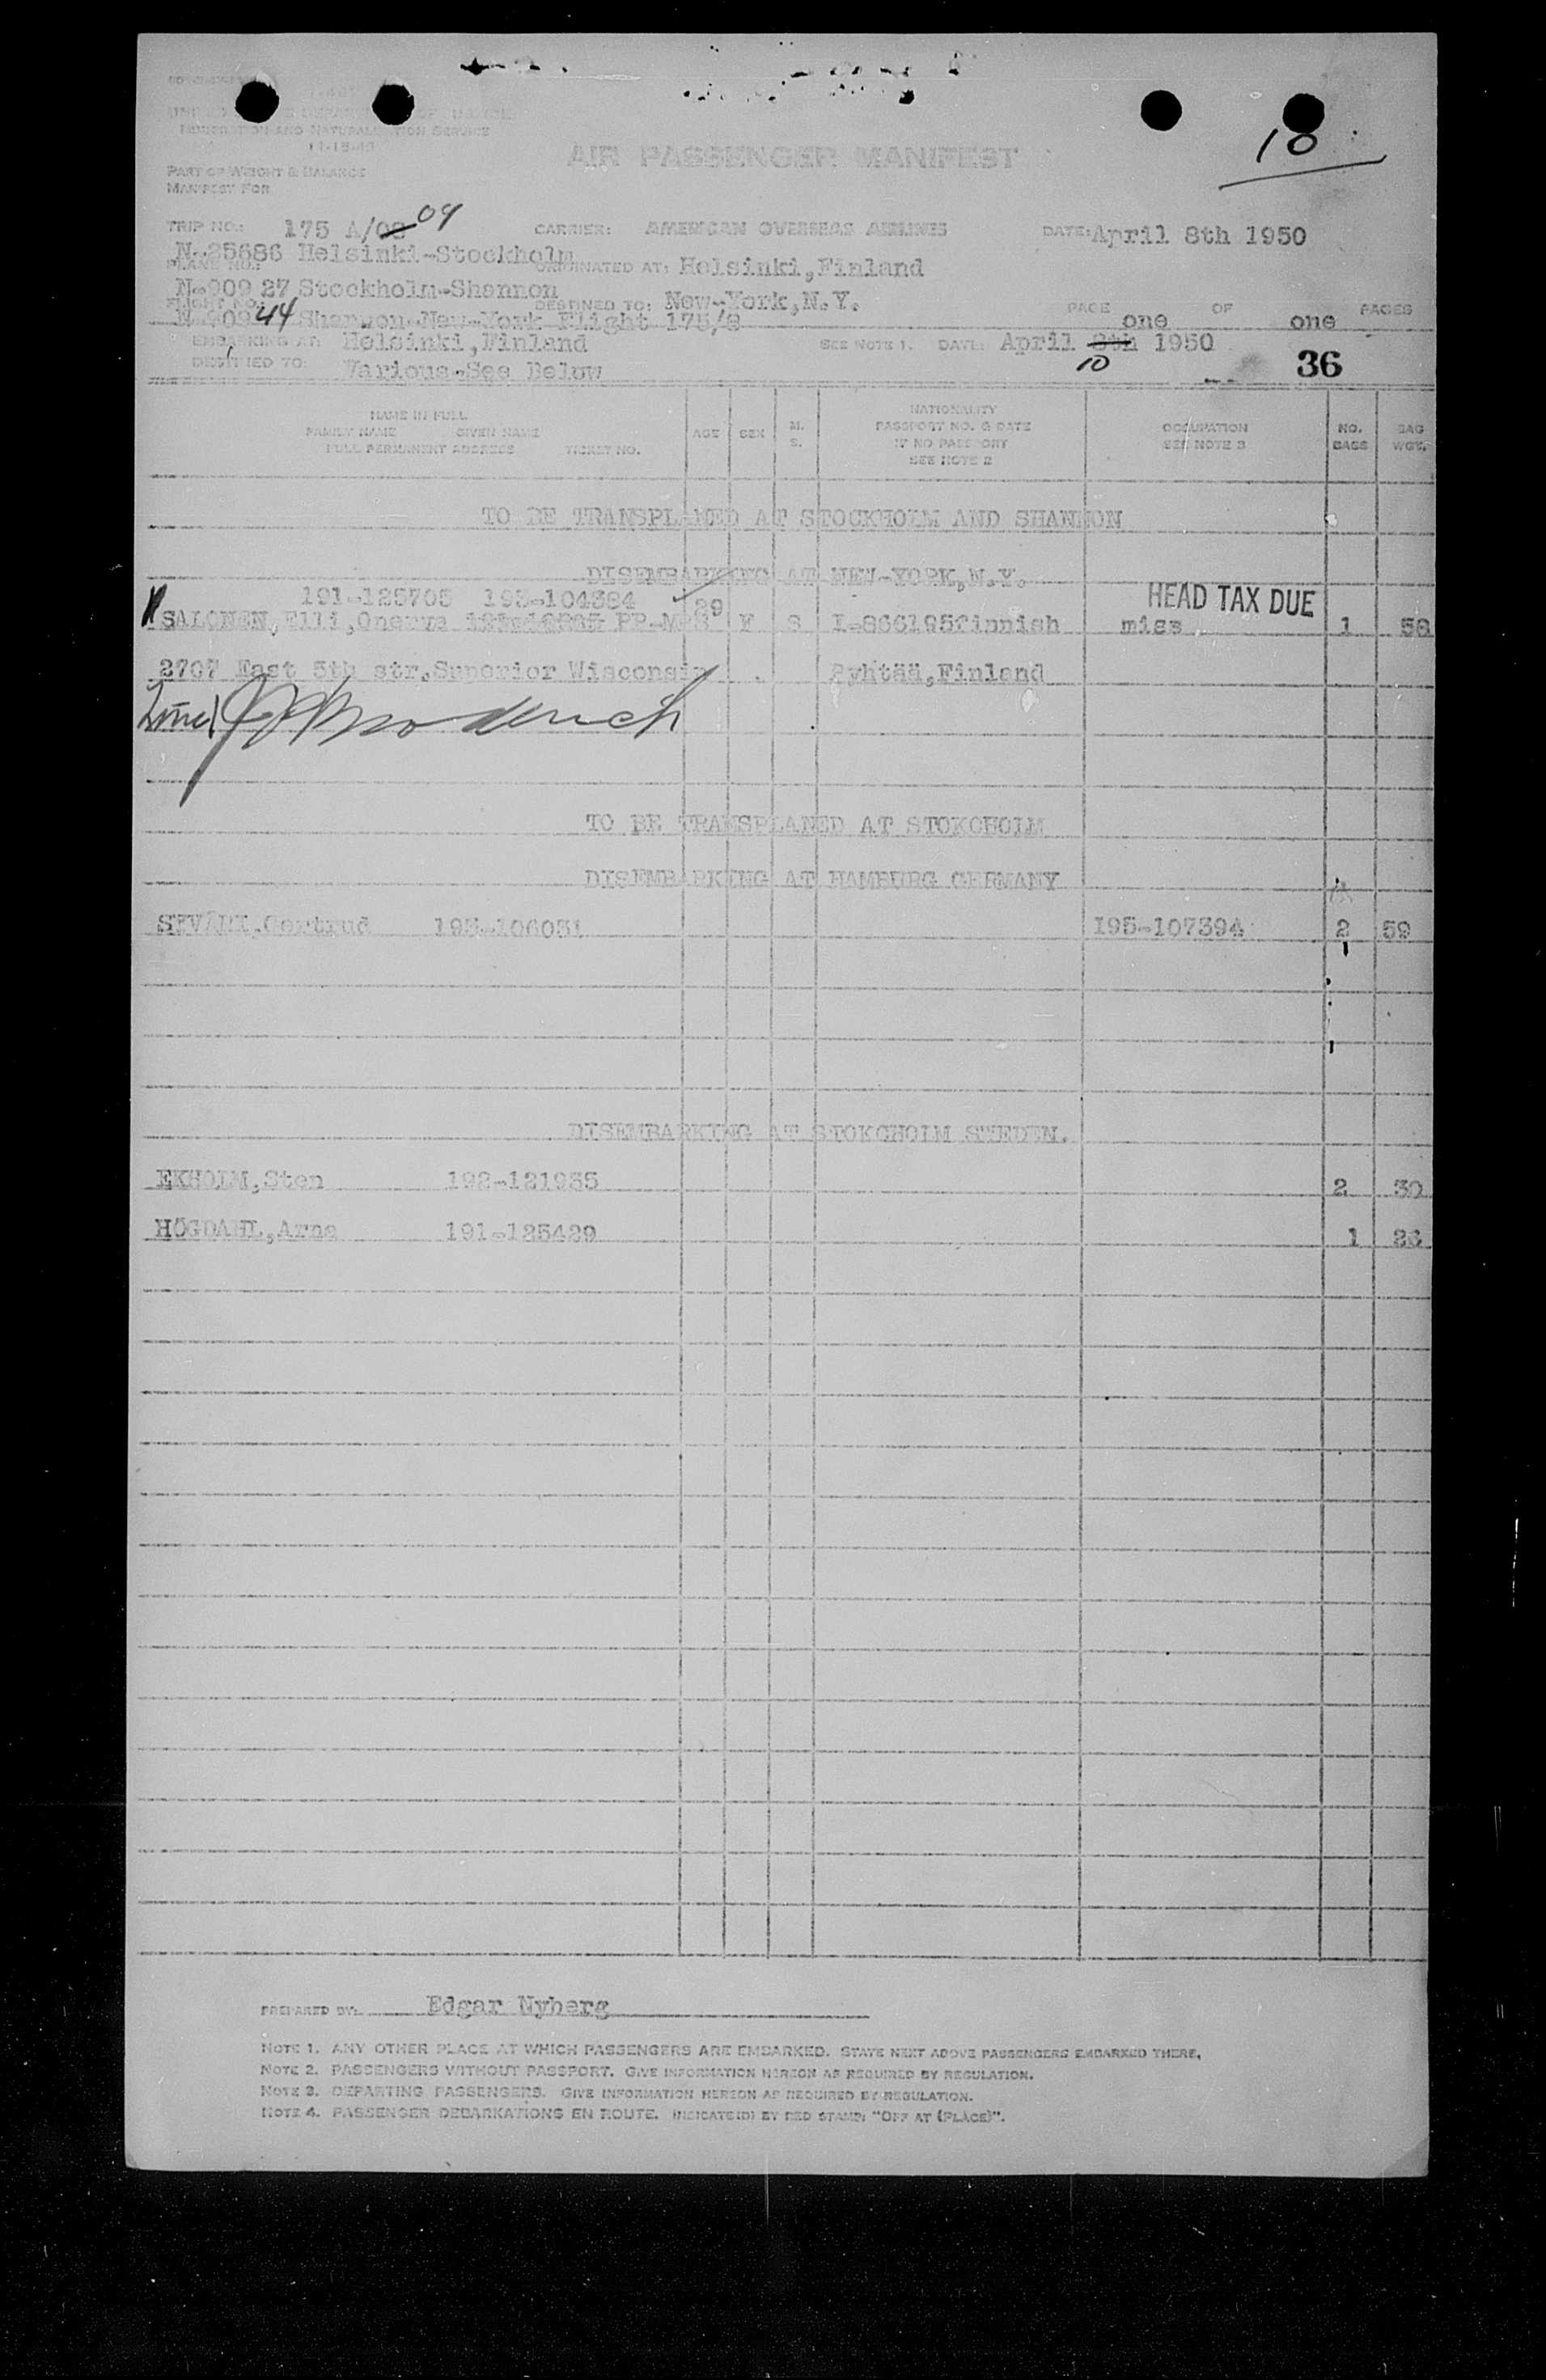 10
IMMIGRATION AND NATURALIZATION SERVICE
AIR PASSENGER MANIFEST
PART OF WEIGHT & BALANCE
MANIFEST FOR
TRIP NO.: 175 A/08 09 CARRIER: AMERICAN OVERSEAS AIRLINES DATE: April 8th 1950
N-25686 Helsinki-Stockholm
PLANE NO.: ORIGINATED AT: Helsinki,Finland
N-909 27 Stockholm-Shannon
FLIGHT NO. DESTINED TO: New-York,N.Y. PAGE one OF one PAGES
N-909 44 Shannon-New-York Flight 175/8
EMBARKING AT: Helsinki,Finland SEE NOTE 1. DATE: April 8th 1950
10
DESTINED TO: Various-See Below 36
NAME IN FULL
FAMILY NAME GIVEN NAME
FULL PERMANENT ADDRESS TICKET NO.
AGE SEX M. S.
NATIONALITY
PASSPORT NO. & DATE
IF NO PASSPORT
SEE NOTE 2
OCCUPATION
SEE NOTE 3
NO. BAGS
BAG WGT.
TO BE TRANSPLANED AT STOCKHOLM AND SHANNON
DISEMBARKING AT NEW-YORK,N.Y.
191-125705 193-104384 29 HEAD TAX DUE
SALONEN,Elli,Onerva F S I-866195finnish miss 1 58
2707 East 5th str.Superior Wisconsin Pyhtää,Finland
TO BE TRANSPLANED AT STOKCHOLM
DISEMBARKING AT HAMBURG GERMANY
Gertrud 195-106031 195-107394 2 59
DISEMBARKING AT STOKCHOLM SWEDEN.
EKHOLM,Sten 192-121935 2 30
HÖGDAHL,Arne 191-125429 1 26
PREPARED BY: Edgar Nyberg
NOTE 1. ANY OTHER PLACE AT WHICH PASSENGERS ARE EMBARKED. STATE NEXT ABOVE PASSENGERS EMBARKED THERE.
NOTE 2. PASSENGERS WITHOUT PASSPORT. GIVE INFORMATION HEREON AS REQUIRED BY REGULATION.
NOTE 3. DEPARTING PASSENGERS. GIVE INFORMATION HEREON AS REQUIRED BY REGULATION.
NOTE 4. PASSENGER DEBARKATIONS EN ROUTE. INDICATE(D) BY RED STAMP: "OFF AT (PLACE)".